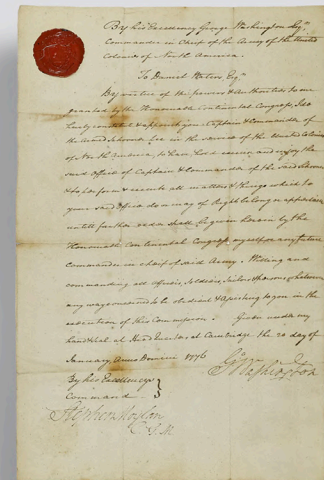 By his Excellency George Washington Esqr.
Commander in Chief of the Army of the United
Colonies of North America.
To Daniel Waters Esqr.
By virtue of the powers & authorities to me
granted by the Honourable Continental Congress, I do
hereby constitute & appoint you Captain & Commander of
the armed Schooner Lee in the service of the United Colonies
of North America, to have, hold exercise and enjoy the
said Office of Captain & Commander of the said Schooner
& to perform & execute all matters & things which to
your said Office do or may of Right belong or appertain
untill further order shall be given herein by the
Honourable Continental Congress, myself or any future
Commander in chief of said Army. Willing and
commanding all Officers, Soldiers, Sailors & persons whatsoever
any ways concerned to be obedient & assisting to you in the
execution of this Commission. Given under my
hand & seal at Head Quarters at Cambridge the 20 day of
January Anno Domini 1776
Go Washington
By his Excellency's
Command
Stephen Moylan